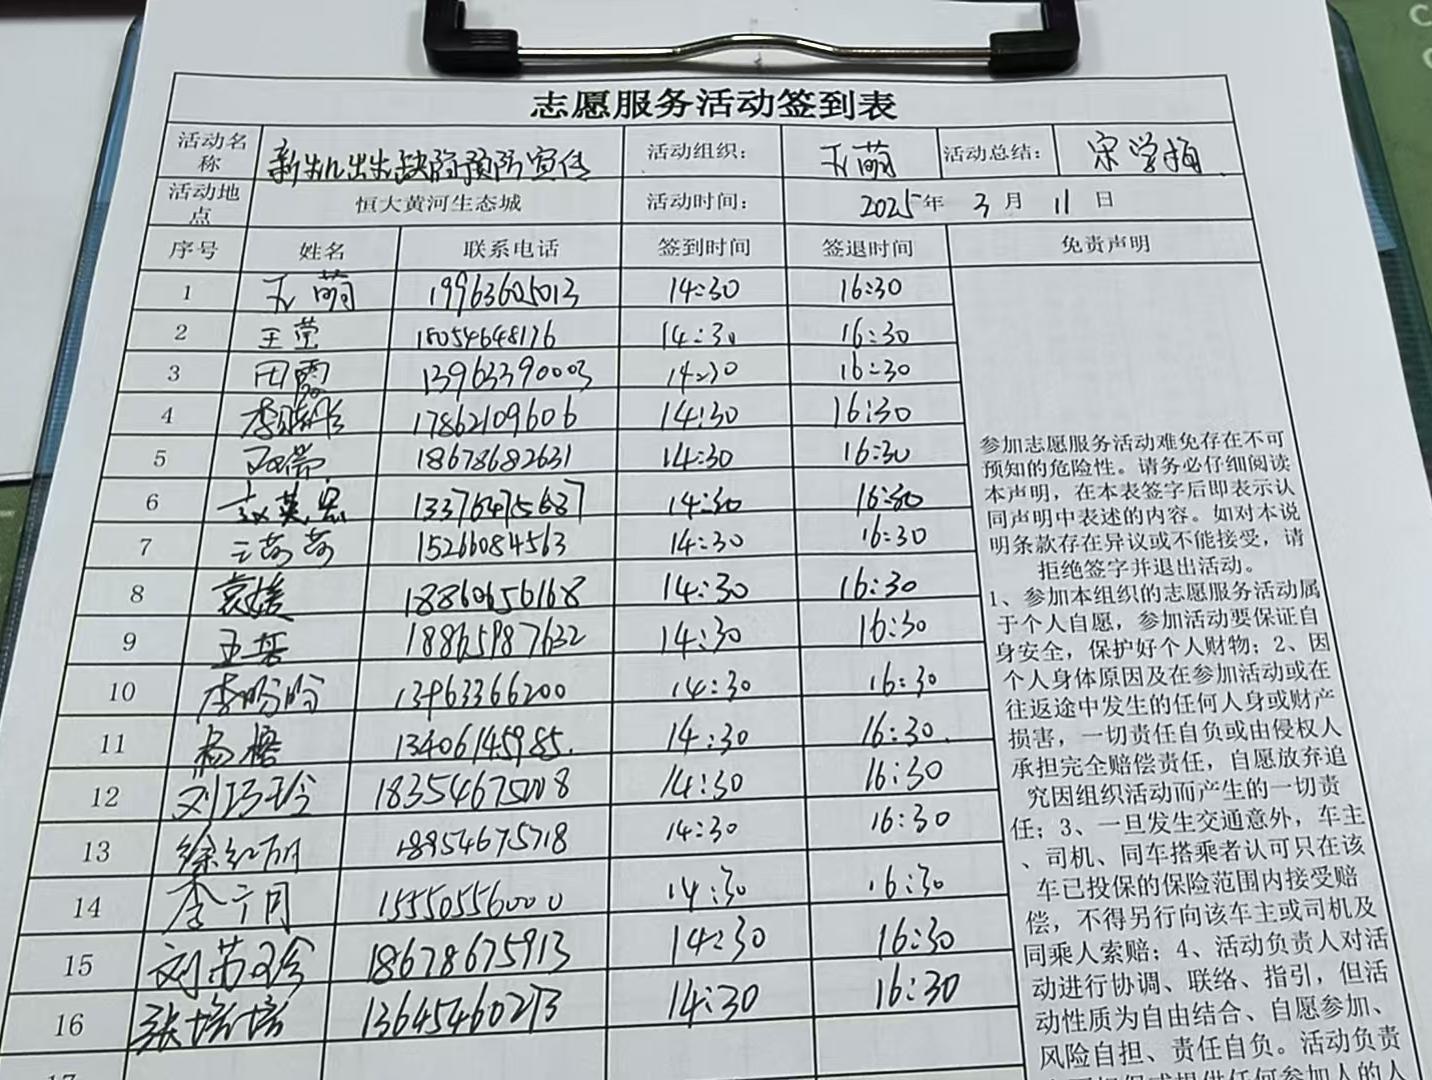 志愿服务活动签到表
活动名称 新九出生缺陷预防宣传 活动组织： 王萌 活动总结： 宋学梅
活动地点 恒大黄河生态城 活动时间： 2025年 3月 11日
序号 姓名 联系电话 签到时间 签退时间 免责声明
1 王萌 19963605013 14:30 16:30
2 王莹 15054648176 14:30 16:30
3 田霞 13963390003 14:30 16:30
4 17862109606 14:30 16:30
5 18678682631 14:30 16:30
6 赵英 13376475687 14:30 16:30
7 王荷荷 15266084563 14:30 16:30
8 袁媛 18860656168 14:30 16:30
9 18865987632 14:30 16:30
10 李盼盼 13963366200 14:30 16:30
11 杨 13406145985. 14:30 16:30.
12 刘巧玲 18354675008 14:30 16:30
13 徐红丽 18954675718 14:30 16:30
14 李月 15550556000 14:30 16:30
15 刘苏珍 18678675913 14:30 16:30
16 张培培 13645460273 14:30 16:30
17
参加志愿服务活动难免存在不可
预知的危险性。请务必仔细阅读
本声明，在本表签字后即表示认
同声明中表述的内容。如对本说
明条款存在异议或不能接受，请
拒绝签字并退出活动。
1、参加本组织的志愿服务活动属
于个人自愿，参加活动要保证自
身安全，保护好个人财物；2、因
个人身体原因及在参加活动或在
往返途中发生的任何人身或财产
损害，一切责任自负或由侵权人
承担完全赔偿责任，自愿放弃追
究因组织活动而产生的一切责
任；3、一旦发生交通意外，车主
、司机、同车搭乘者认可只在该
车已投保的保险范围内接受赔
偿，不得另行向该车主或司机及
同乘人索赔；4、活动负责人对活
动进行协调、联络、指引，但活
动性质为自由结合、自愿参加、
风险自担、责任自负。活动负责